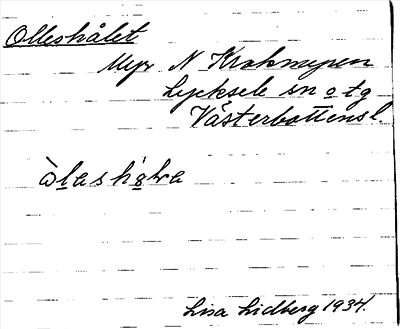 Olleshålet
Myr N Krokmyren
Lycksele sn o tg
Västerbottensl.
Lisa Lidberg 1934.